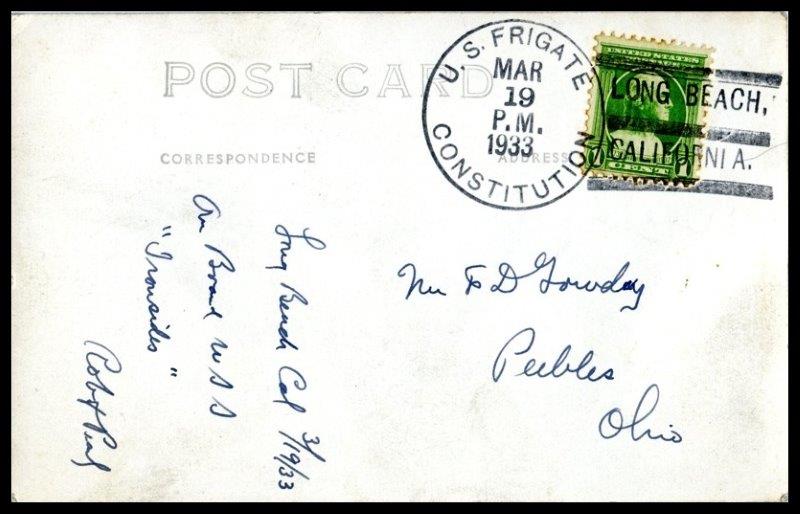 POST CARD
CORRESPONDENCE
ADDRESS
U.S. FRIGATE
MAR
19
P.M.
1933
CONSTITUTION
UNITED STATES
LONG BEACH,
CALIFORNIA.
CENT
Long Beach Cal 3/19/33
On Board USS
"Ironsides"
Rob & Pearl
F D Gowdy
Peebles
Ohio